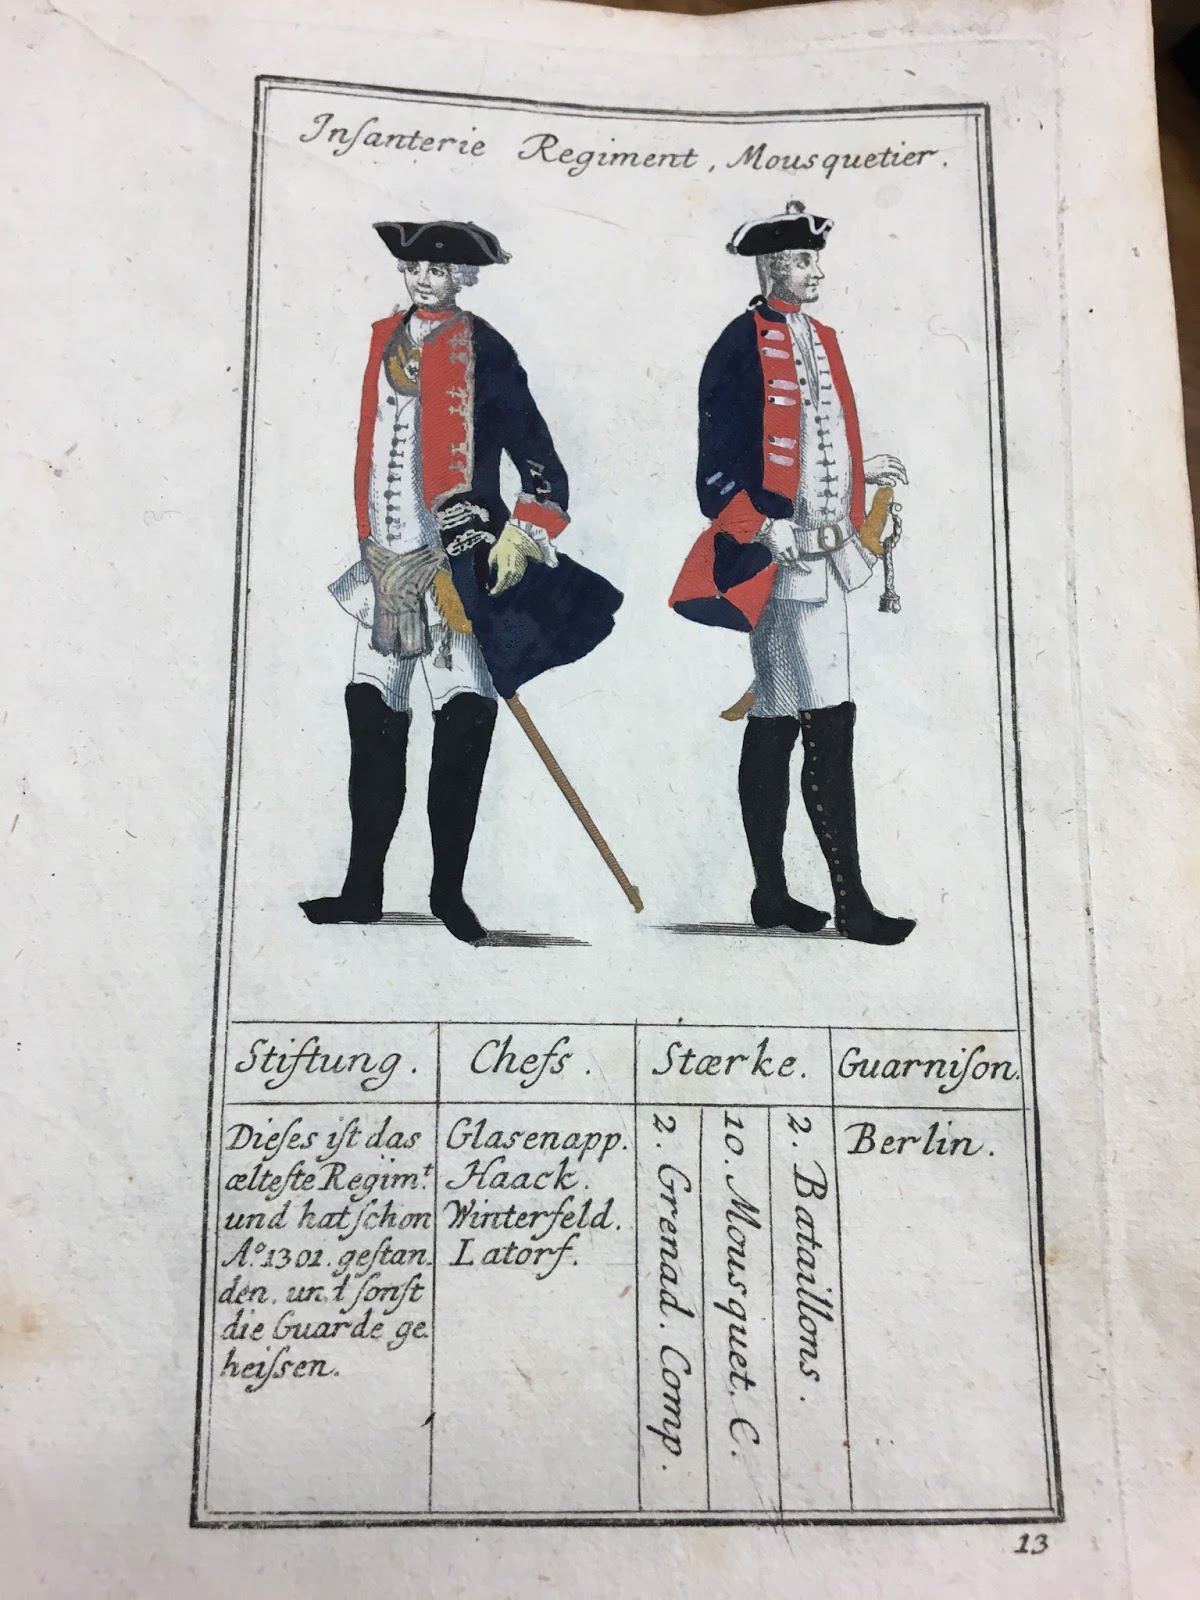 Inſanterie Regiment, Mousquetier.
Stiftung.
Chefs.
Stærke.
Guarniſon.
Dieſes iſt das
ælteſte Regim.t
und hat ſchon
A.o 1301. geſtan.
den. und ſonſt
die Guarde ge.
heiſsen.
Glasenapp.
Haack.
Winterfeld.
Latorf.
2. Grenad. Comp.
10. Mousquet. C.
2. Bataillons.
Berlin.
13